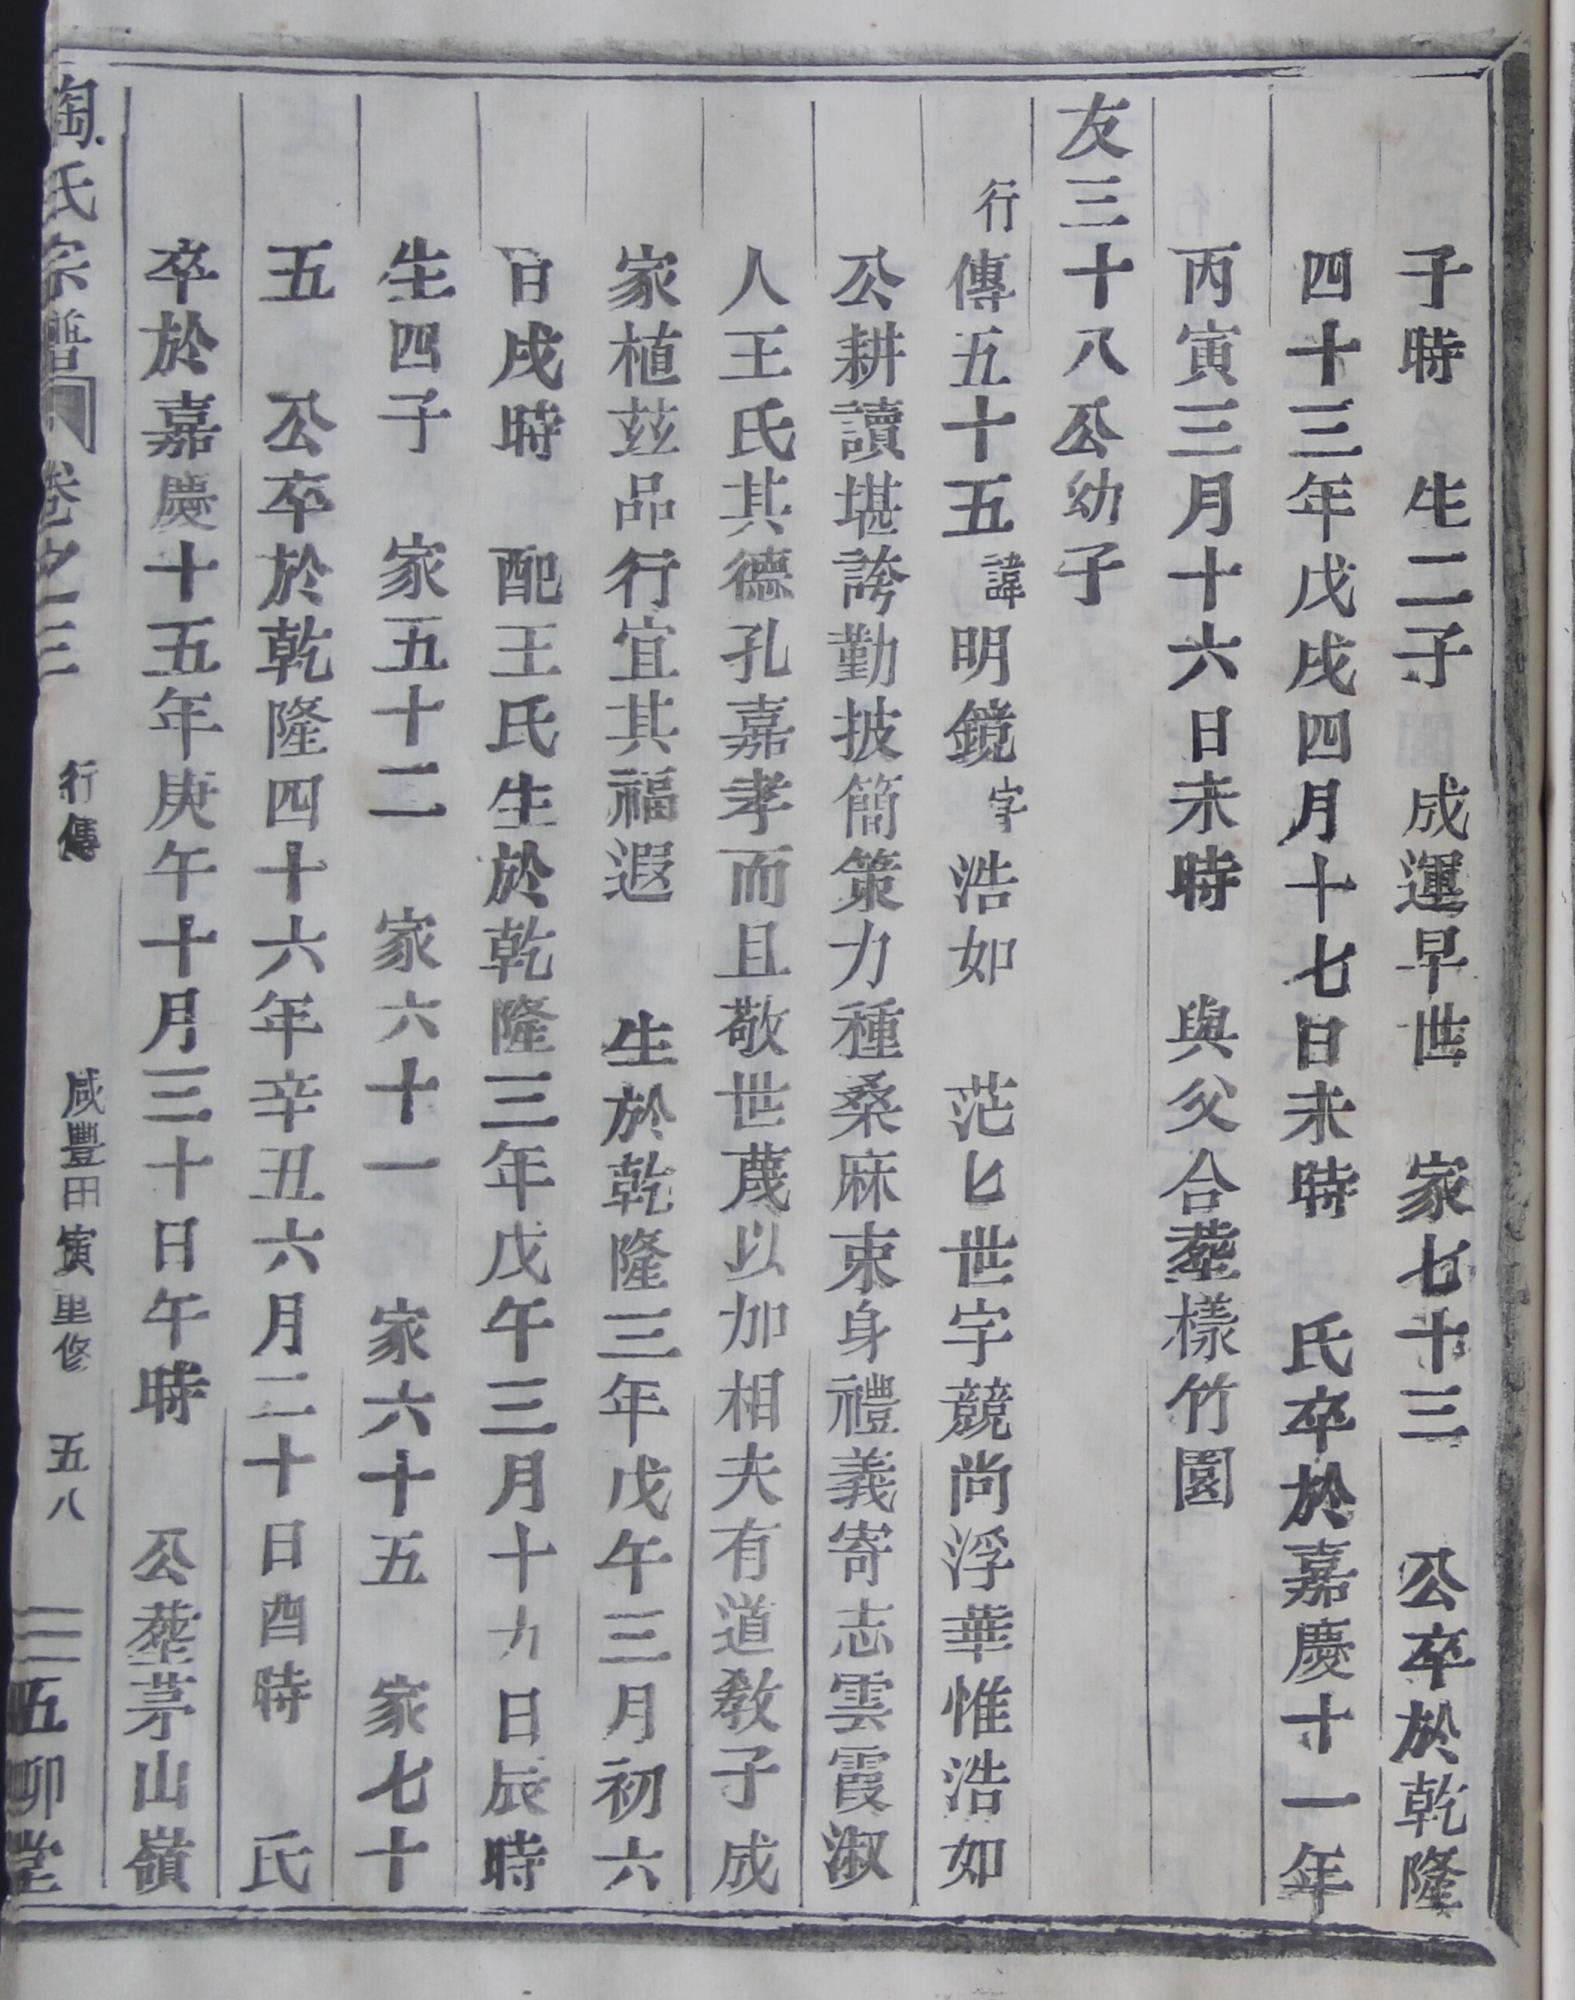 子時　生二子　成運早世　家七十三　公卒於乾隆
四十三年戊戌四月十七日未時　氏卒於嘉慶十一年
丙寅三月十六日未時　與父合塟樣竹園
友三十八公幼子
行傳五十五諱明鏡字浩如　茫匕世宇競尚浮華惟浩如
公耕讀堪誇勤披簡策力種桑麻束身禮義寄志雲霞淑
人王氏其德孔嘉孝而且敬世蔑以加相夫有道教子成
家植玆品行宜其福遐　生於乾隆三年戊午三月初六
日戌時　配王氏生於乾隆三年戊午三月十九日辰時
生四子　家五十二　家六十一　家六十五　家七十
五　公卒於乾隆四十六年辛丑六月二十日酉時　氏
卒於嘉慶十五年庚午十月三十日午時　公塟茅山嶺
陶氏宗譜　卷之三　行傳　咸豐甲寅重修　五八　五柳堂